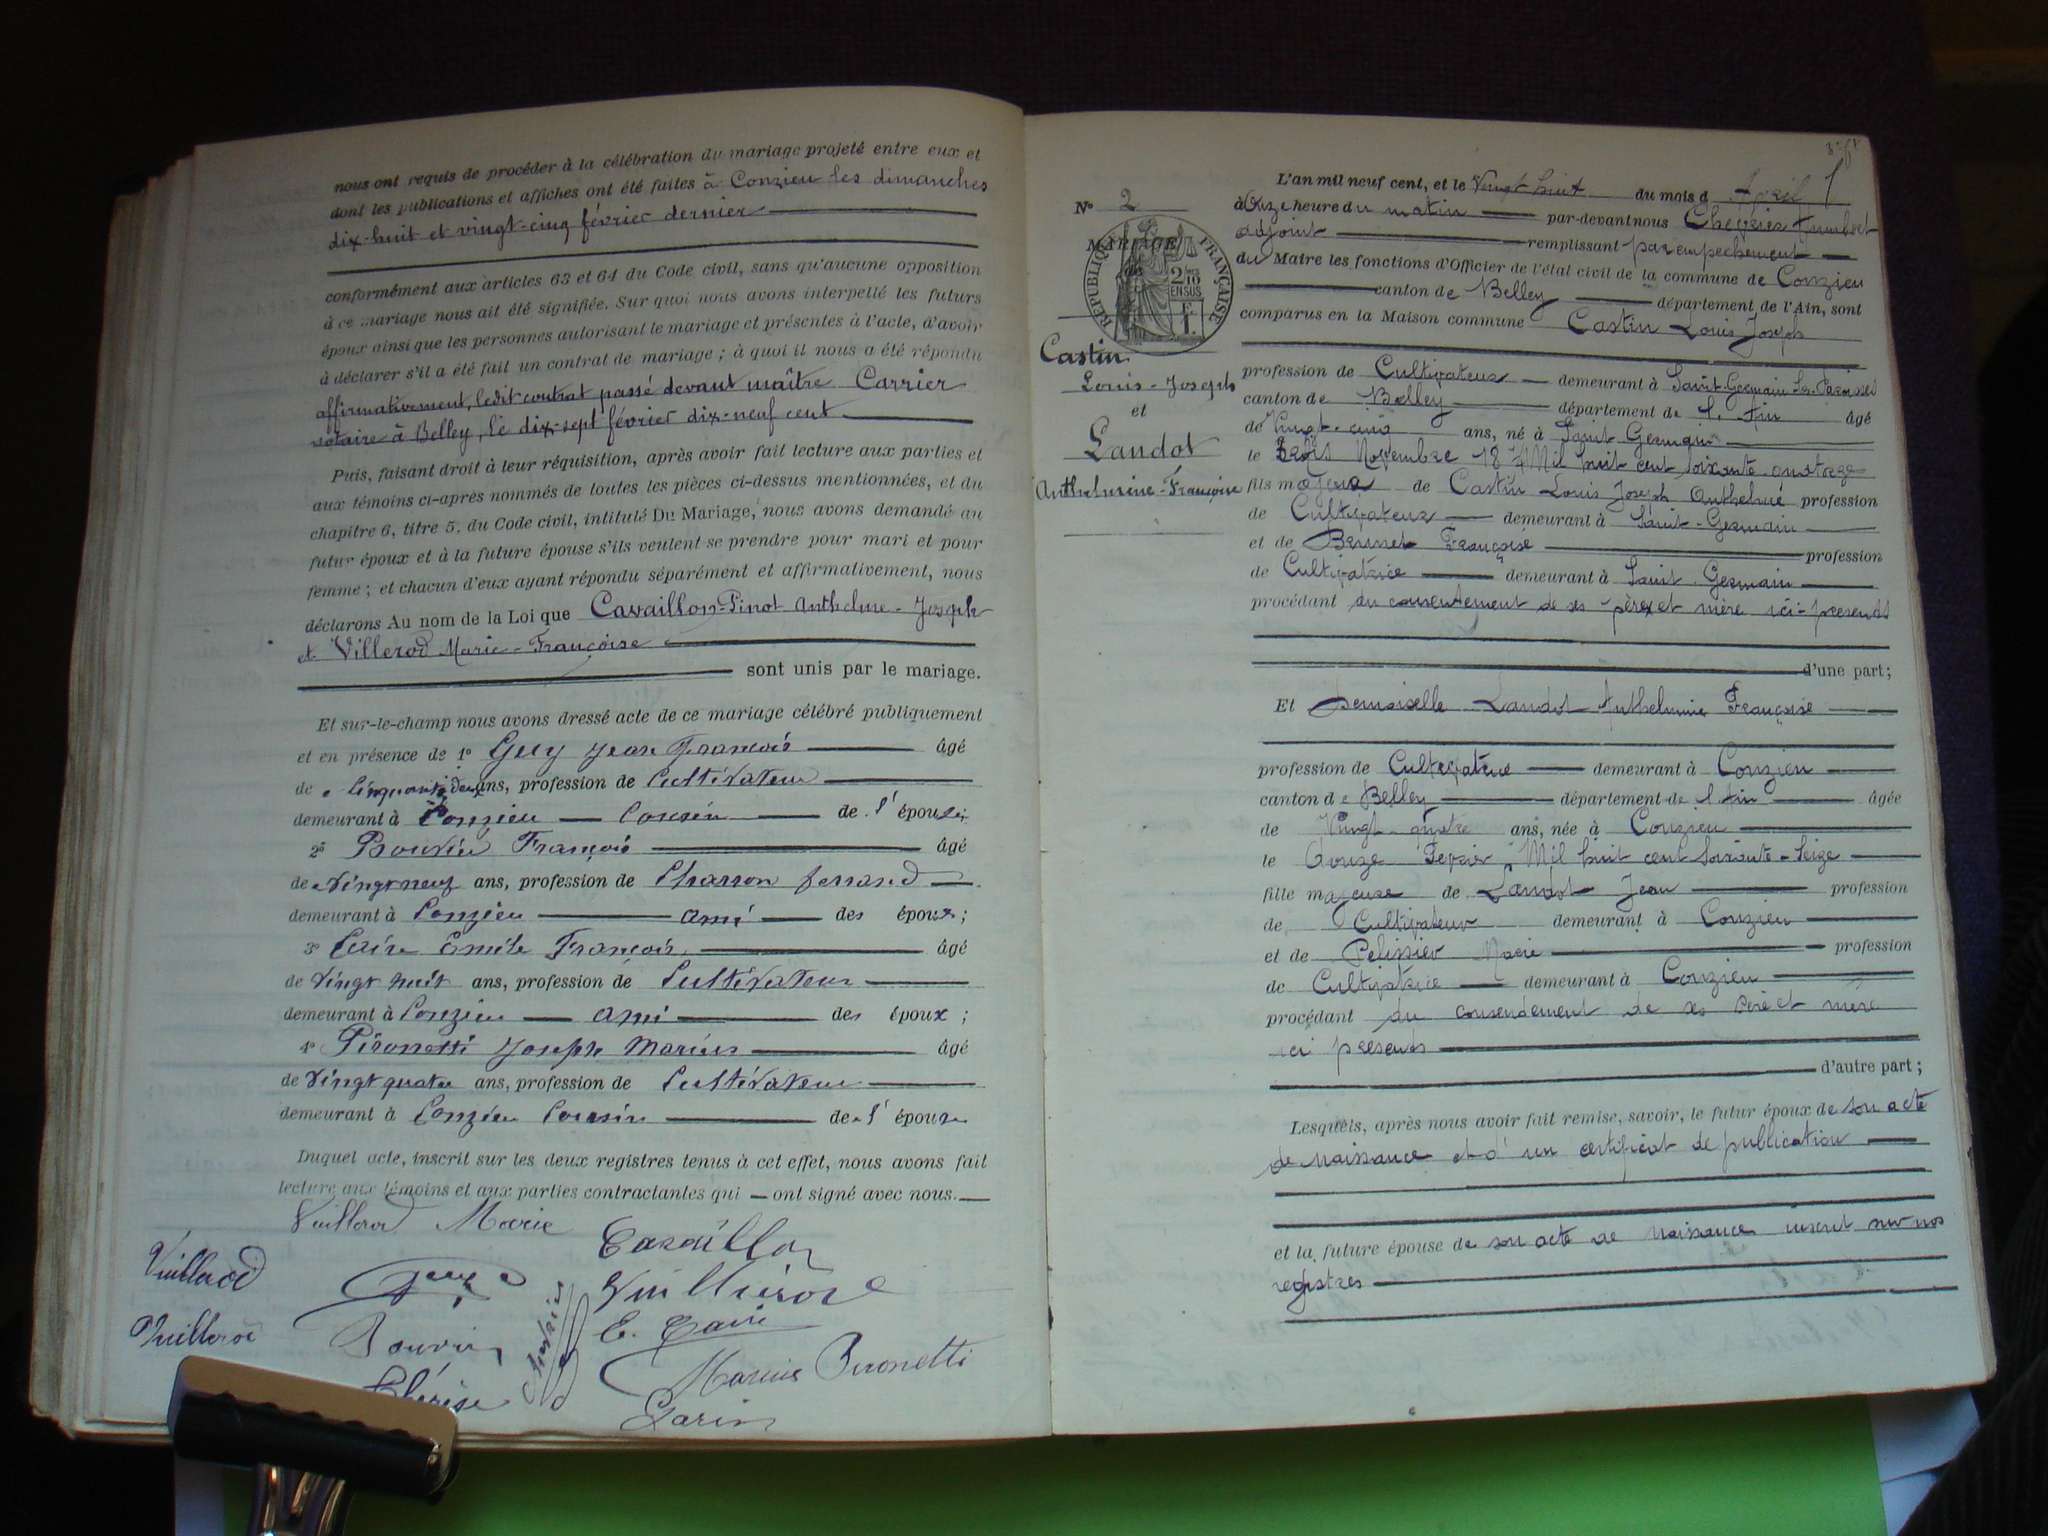 nous ont requis de procéder à la célébration du mariage projeté entre eux et
dont les publications et affiches ont été faites à Conzieu les dimanches
dix-huit et vingt-cinq février dernier
conformément aux articles 63 et 64 du Code civil, sans qu'aucune opposition
à ce mariage nous ait été signifiée. Sur quoi nous avons interpellé les futurs
époux ainsi que les personnes autorisant le mariage et présentes à l'acte, d'avoir
à déclarer s'il a été fait un contrat de mariage ; à quoi il nous a été répondu
affirmativement, ledit contrat passé devant maître Carrier
notaire à Belley, le dix-sept février dix-neuf cent
Puis, faisant droit à leur réquisition, après avoir fait lecture aux parties et
aux témoins ci-après nommés de toutes les pièces ci-dessus mentionnées, et du
chapitre 6, titre 5, du Code civil, intitulé Du Mariage, nous avons demandé au
futur époux et à la future épouse s'ils veulent se prendre pour mari et pour
femme ; et chacun d'eux ayant répondu séparément et affirmativement, nous
déclarons Au nom de la Loi que Cavaillon-Pinot Anthelme-Joseph
et Villerod Marie-Françoise
sont unis par le mariage.
Et sur-le-champ nous avons dressé acte de ce mariage célébré publiquement
et en présence de 1° Guy Jean François âgé
de Cinquante deux ans, profession de Cultivateur
demeurant à Conzieu Cousin de l'épouse;
2° Bouvier François âgé
de vingt neuf ans, profession de Charron ferrand
demeurant à Conzieu ami des époux;
3° Caire Emile François âgé
de vingt huit ans, profession de Cultivateur
demeurant à Conzieu ami des époux ;
4° Pironetti Joseph Marius âgé
de vingt quatre ans, profession de Cultivateur
demeurant à Conzieu Cousin de l'épouse
Duquel acte, inscrit sur les deux registres tenus à cet effet, nous avons fait
lecture aux témoins et aux parties contractantes qui ont signé avec nous.
Vuillerod Marie Cavaillon
Vuillerod
Vuillerod
Bouvier
E. Caire
Marius Pironetti
Garin
N° 2
MARIAGE
RÉPUBLIQUE FRANÇAISE
2/10
EN SUS
Castin
Louis-Joseph
et
Landot
Anthelmine-Françoise
L'an mil neuf cent, et le Vingt huit du mois d Avril
à Onze heure du matin par-devant nous
adjoint remplissant par empechement
du Maire les fonctions d'Officier de l'état civil de la commune de Conzieu
canton de Belley département de l'Ain, sont
comparus en la Maison commune Castin Louis Joseph
profession de Cultivateur demeurant à Saint-Germain-les-Paroisses
canton de Belley département de l'Ain âgé
de Vingt-cinq ans, né à Saint Germain
le trois Novembre 1874 Mil huit cent soixante quatorze
fils majeur de Castin Louis Joseph Anthelme profession
de Cultivateur demeurant à Saint-Germain
et de Brunet Françoise profession
de Cultivatrice demeurant à Saint Germain
procédant du consentement de ses père et mère ici-presents
d'une part;
Et Demoiselle Landot Anthelmine Françoise
profession de Cultivatrice demeurant à Conzieu
canton de Belley département de l'Ain âgée
de Vingt-quatre ans, née à Conzieu
le Douze Fevrier Mil huit cent soixante-Seize
fille majeure de Landot Jean profession
de Cultivateur demeurant à Conzieu
et de Pelissier Marie profession
de Cultivatrice demeurant à Conzieu
procédant du consendement de ses père et mère
ici presents
d'autre part;
Lesquels, après nous avoir fait remise, savoir, le futur époux de son acte
de naissance et d'un certificat de publication
et la future épouse de son acte de naissance inscrit sur nos
registres